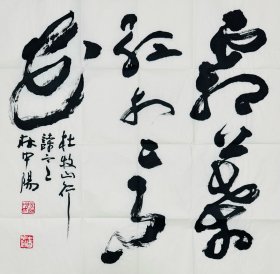 霜葉
紅於二月
花
杜牧山行
詩
林中陽